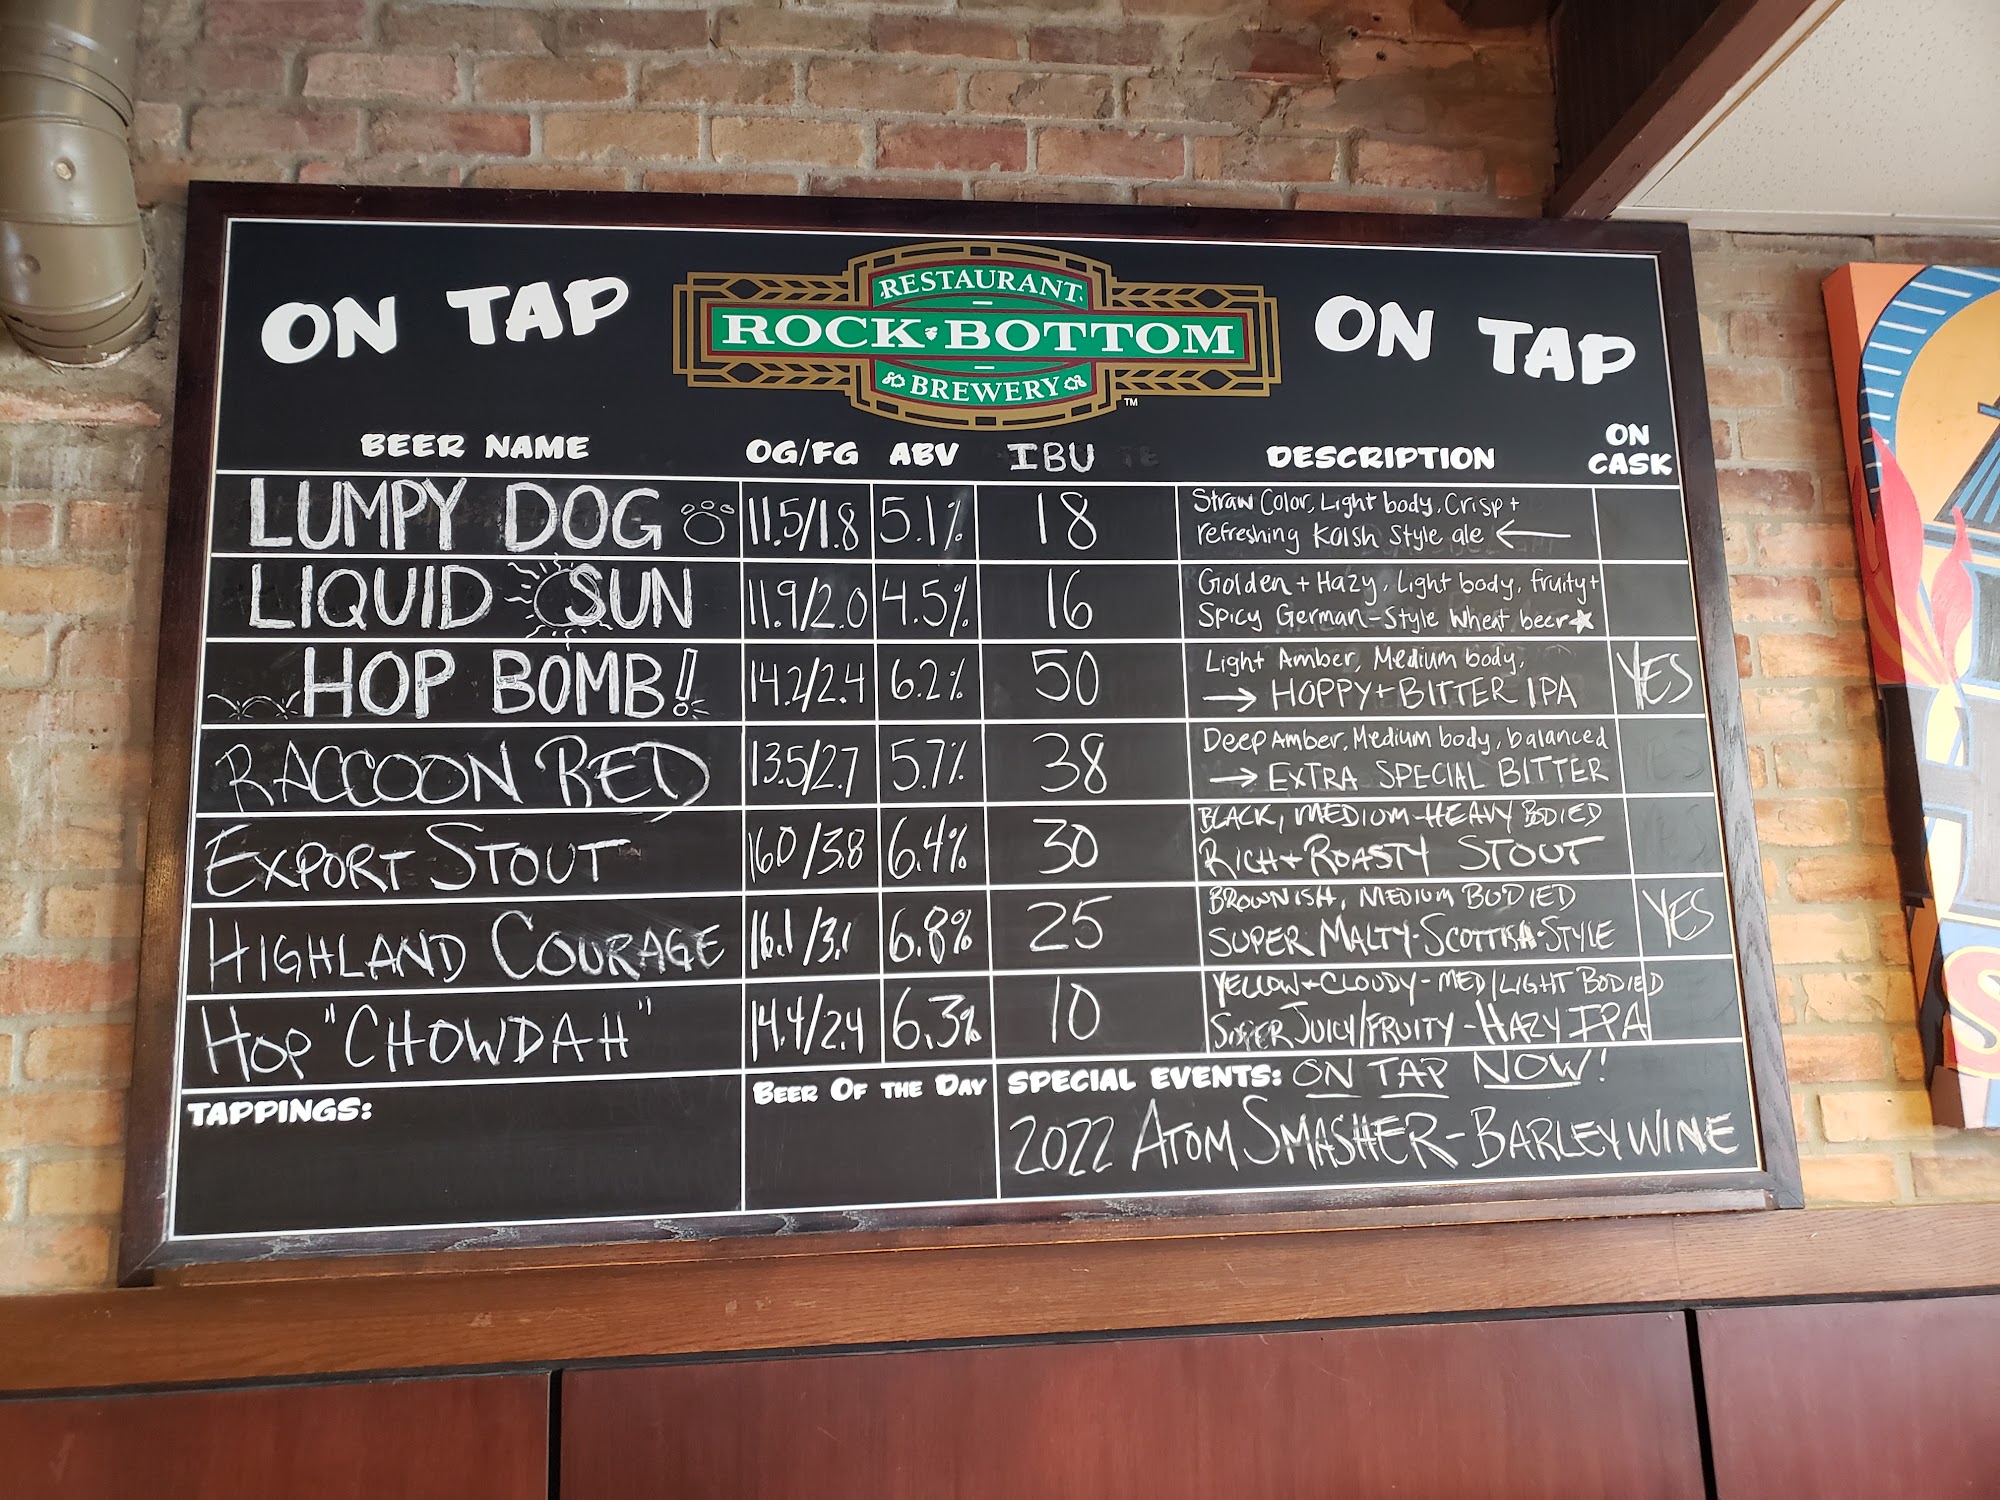 ON TAP
RESTAURANT
ROCK BOTTOM
BREWERY
TM
ON TAP
BEER NAME OG/FG ABV IBU DESCRIPTION ON CASK
LUMPY DOG 11.5/1.8 5.1% 18 Straw Color, Light body, Crisp +
refreshing Kolsh Style ale
LIQUID SUN 11.9/2.0 4.5% 16 Golden + Hazy, Light body, fruity +
Spicy German-Style Wheat beer
HOP BOMB! 14.2/2.4 6.2% 50 Light Amber, Medium body,
→ HOPPY + BITTER IPA YES
RACCOON RED 13.5/2.7 5.7% 38 Deep Amber, Medium body, balanced
→ EXTRA SPECIAL BITTER
EXPORT STOUT 16.0/3.8 6.4% 30 BLACK, MEDIUM-HEAVY BODIED
RICH + ROASTY STOUT
HIGHLAND COURAGE 16.1/3.1 6.8% 25 BROWNISH, MEDIUM BODIED
SUPER MALTY-SCOTTISH-STYLE YES
HOP "CHOWDAH" 14.4/2.4 6.3% 10 YELLOW + CLOUDY - MED/LIGHT BODIED
SUPER JUICY/FRUITY - HAZY IPA
TAPPINGS:
BEER OF THE DAY
SPECIAL EVENTS: ON TAP NOW!
2022 ATOM SMASHER - BARLEYWINE